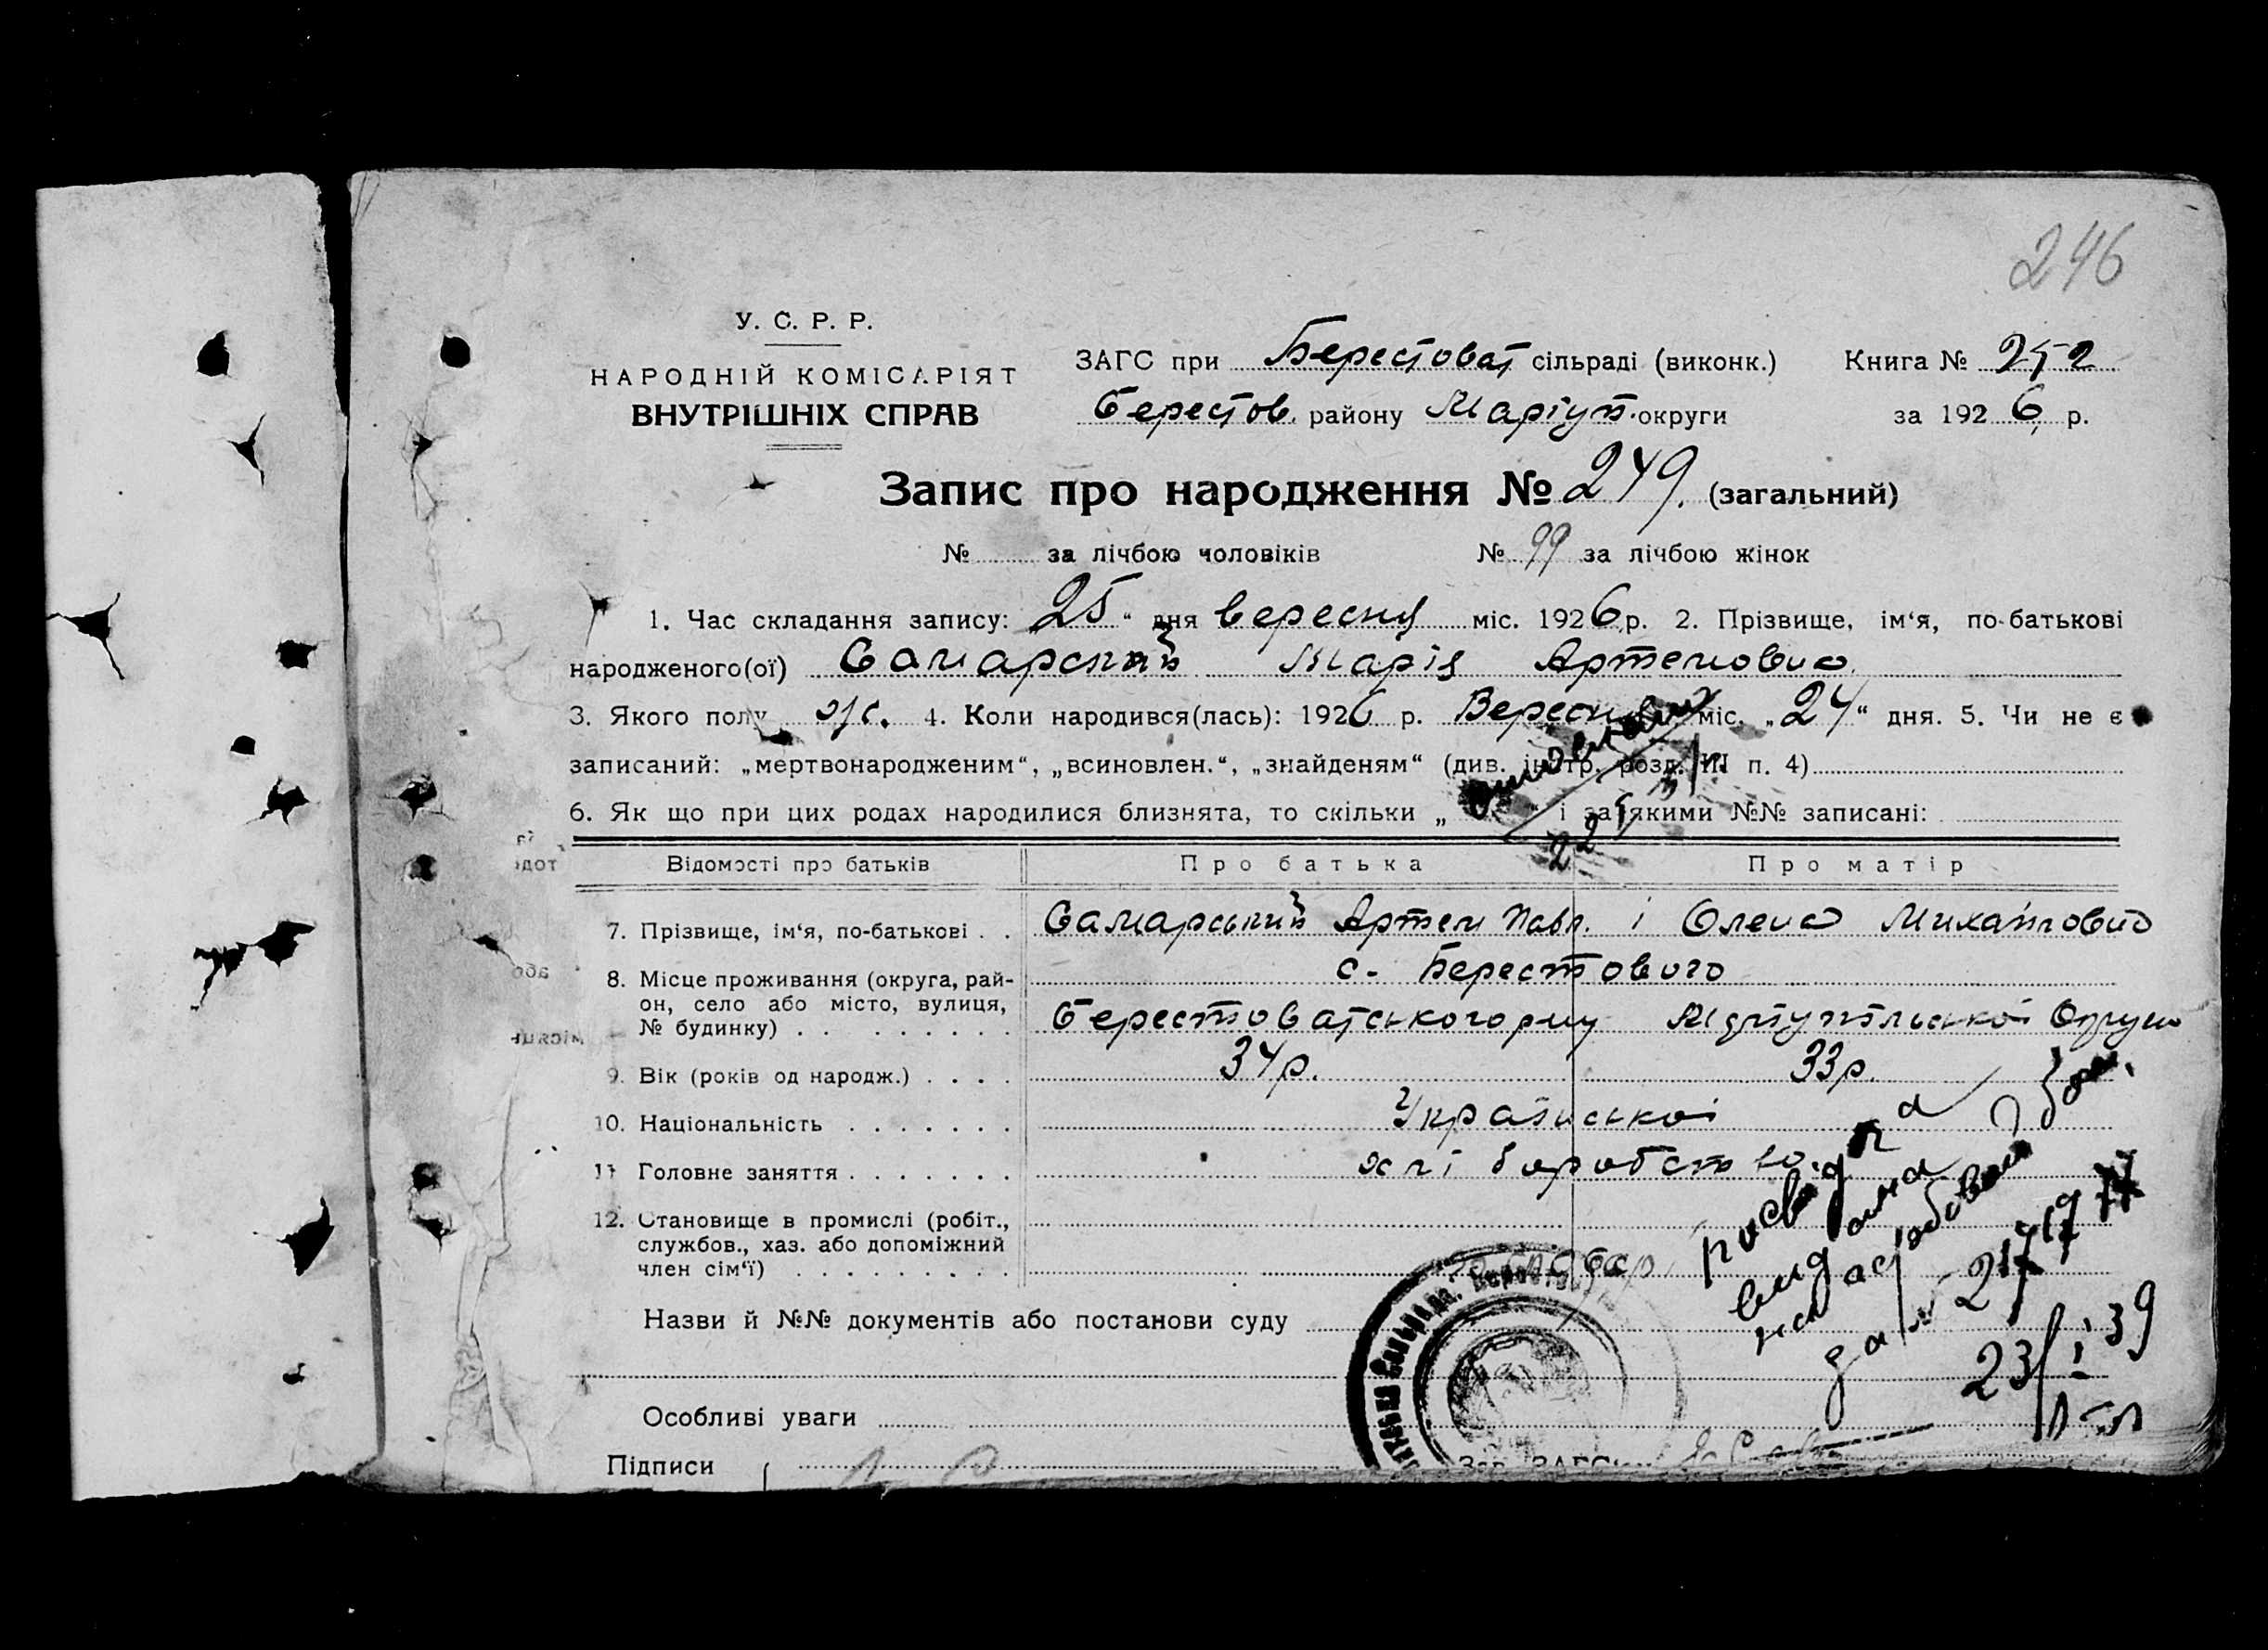 246
У. С. Р. Р.
НАРОДНІЙ КОМІСАРІЯТ
ВНУТРІШНІХ СПРАВ
ЗАГС при Берестоват сільраді (виконк.) Книга № 252
Берестов. району Маріуп. округи за 1926 р.
Запис про народження № 249. (загальний)
№ за лічбою чоловіків № 99 за лічбою жінок
1. Час складання запису: „25“ дня вересня міс. 1926 р. 2. Прізвище, ім‘я, по-батькові
народженого(ої) Самарський Марія Артемовна
3. Якого полу ж. 4. Коли народився(лась): 1926 р. Вересня міс. „24“ дня. 5. Чи не є
записаний: „мертвонародженим“, „всиновлен.“, „знайденям“ (див. інстр. розд. III п. 4)
6. Як що при цих родах народилися близнята, то скільки „ “ і за якими №№ записані:
Відомості про батьків Про батька Про матір
7. Прізвище, ім‘я, по-батькові . . Самарський Артем Павл. і Олена Михайловна
8. Місце проживання (округа, рай-
он, село або місто, вулиця,
№ будинку) . . . . . . . . .
с. Берестового
Берестоватського р-ну Маріупільської Округи
9. Вік (років од народж.) . . . . 34 р. 33 р.
10. Національність . . . . . . . Української
11 Головне заняття . . . . . . . хліборобство
12. Становище в промислі (робіт.,
службов., хаз. або допоміжний
член сім‘ї) . . . . . . . . .
Назви й №№ документів або постанови суду
видана
за № 217
23/I 39
Особливі уваги
Підписи
Зав. ЗАГС